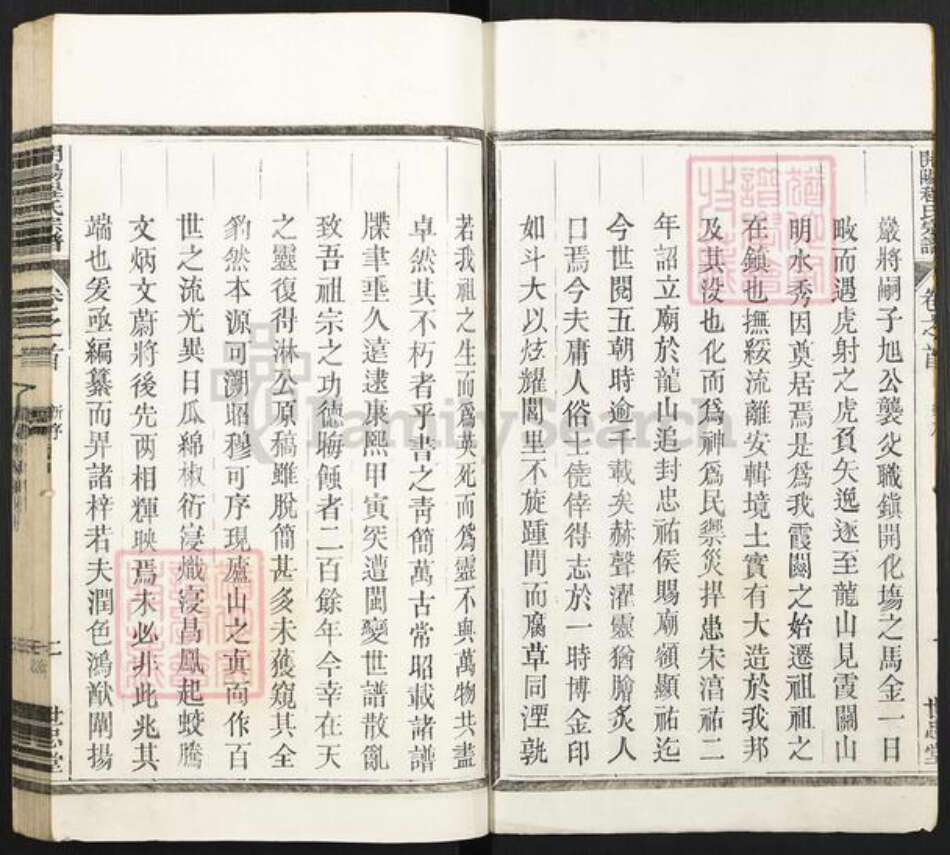 開陽程氏宗譜
卷之首
世忠堂
巖將嗣子旭公襲父職鎭開化塲之馬金一日
畋而遇虎射之虎負矢逸逐至龍山見霞關山
明水秀因奠居焉是爲我霞闗之始遷祖祖之
在鎭也撫綏流離安輯境土實有大造於我邦
及其没也化而爲神爲民禦災捍患宋淳祐二
年詔立廟於龍山追封忠祐侯賜廟額顯祐迄
今世閱五朝時逾千載矣赫聲濯靈猶膾炙人
口焉今夫庸人俗士僥倖得志於一時博金印
如斗大以炫耀閭里不旋踵間而腐草同湮孰
若我祖之生而爲英死而爲靈不與萬物共盡
卓然其不朽者乎書之靑簡萬古常昭載諸譜
牒聿垂久遠逮康熙甲寅突遭閩變世譜散亂
致吾祖宗之功德晦蝕者二百餘年今幸在天
之靈復得淋公原稿雖脱簡甚多未獲窺其全
豹然本源可溯昭穆可序現廬山之真面作百
世之流光異日瓜綿椒衍寖熾寖昌鳳起蛟騰
文炳文蔚將後先兩相輝映焉未必非此兆其
端也爰亟編纂而畀諸梓若夫潤色鴻猷闡揚
開陽程氏宗譜
卷之首
世忠堂
FamilySearch